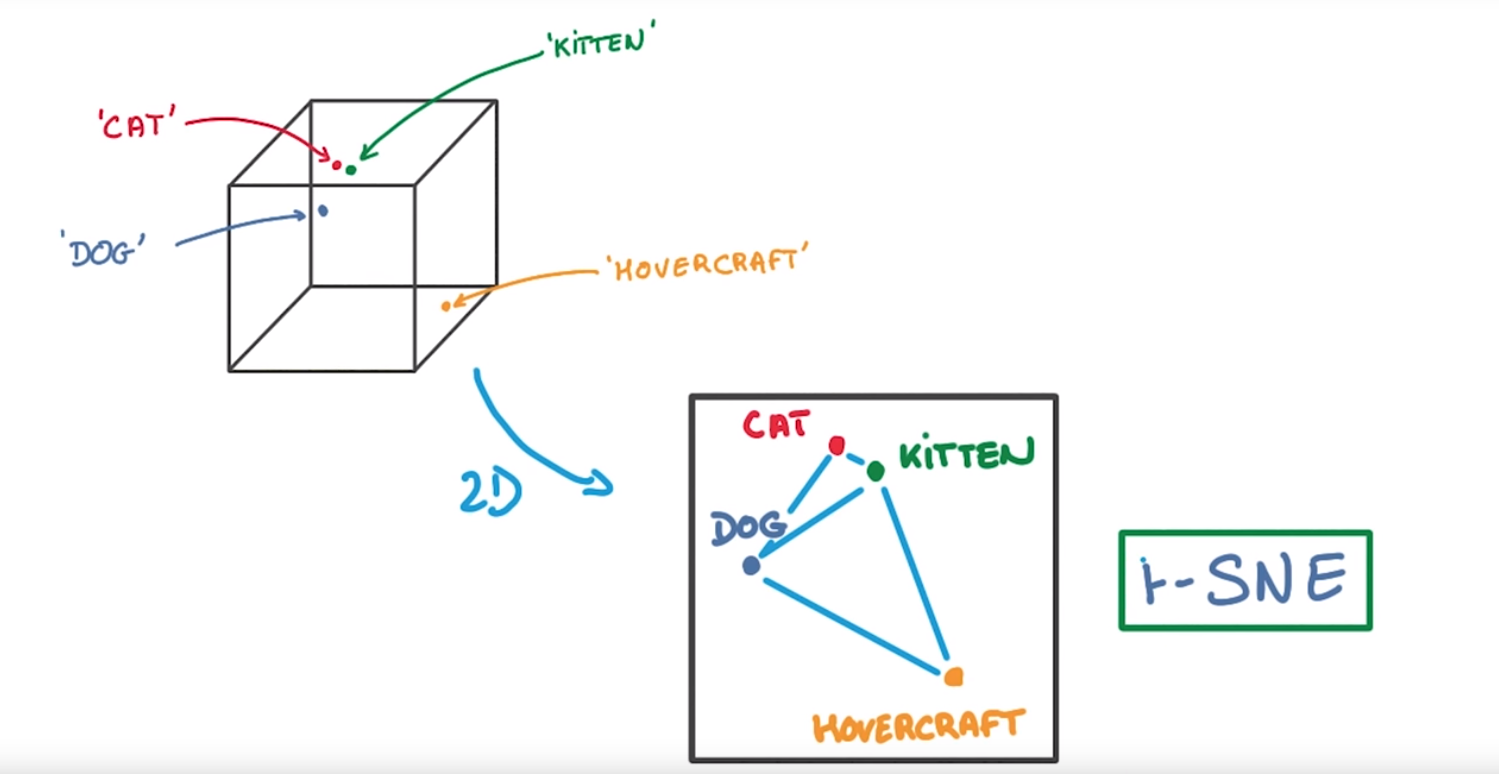 'KiTTEN'
'CAT'
'DOG'
'HOVERCRAFT'
2D
CAT
KiTTEN
DOG
t-SNE
HOVERCRAFT